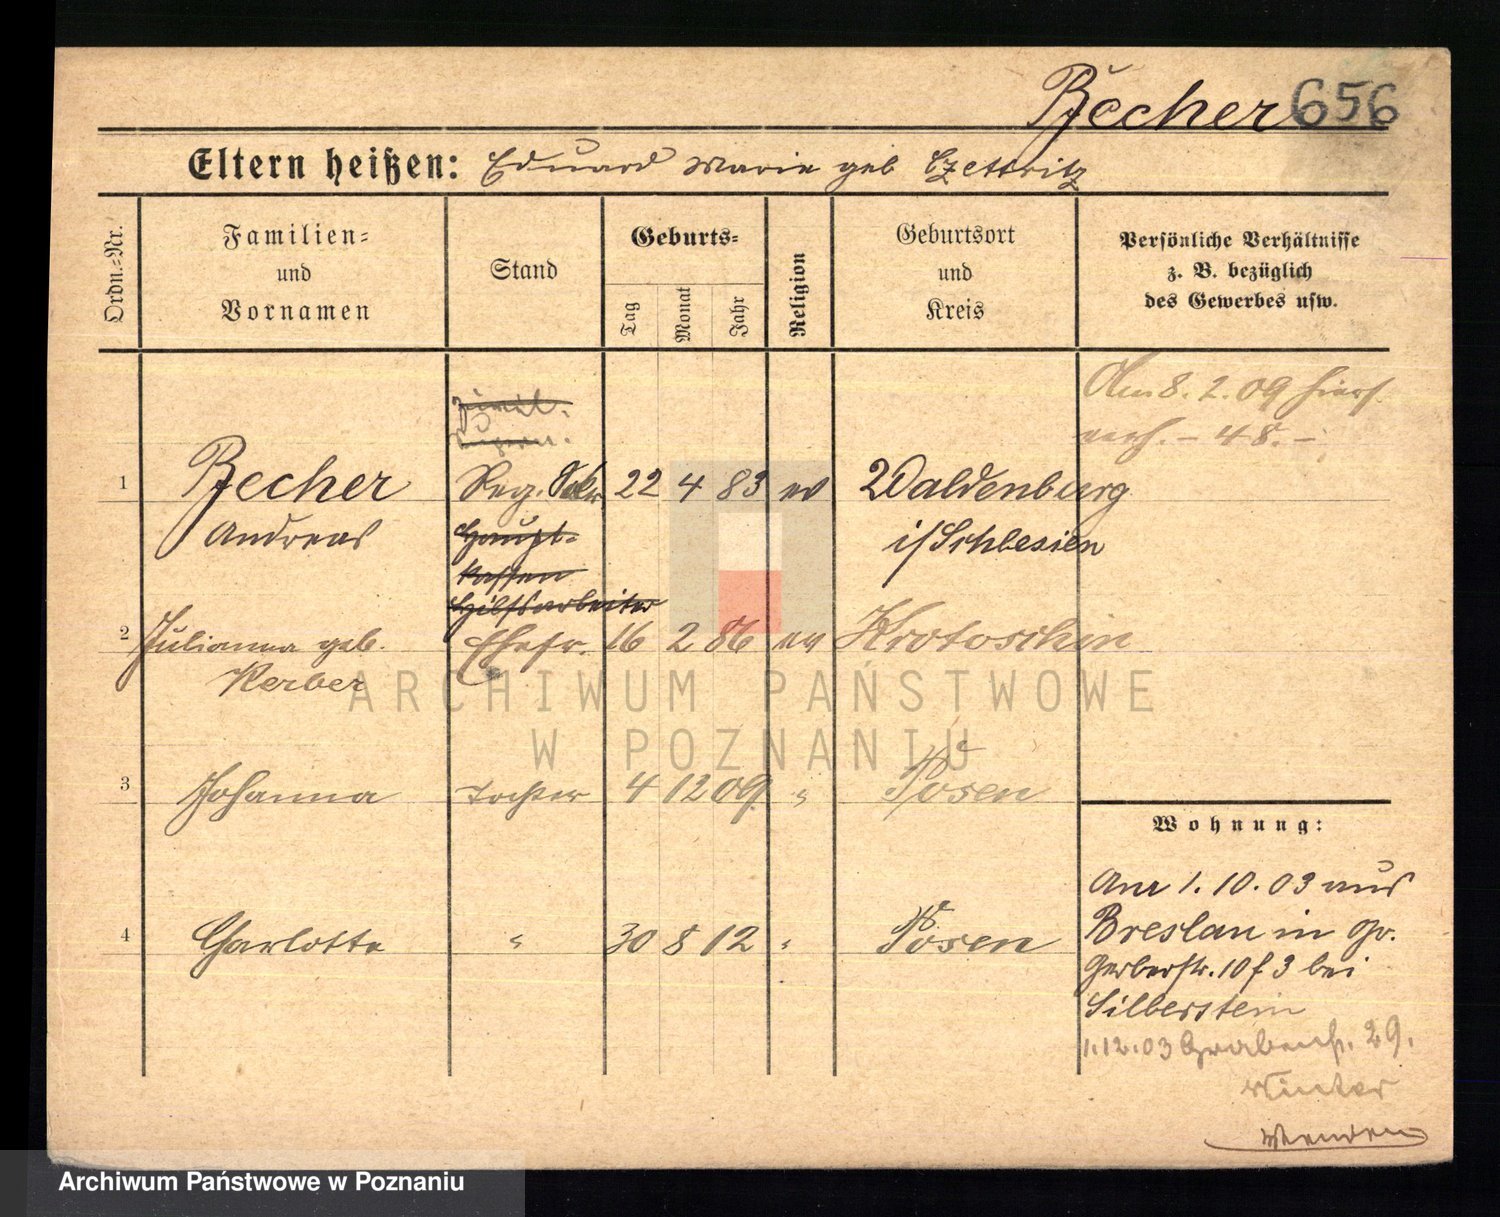 Becher 656
Eltern heißen: Eduard Marie geb Czettritz
Ordn.-Nr.
Familien-
und
Vornamen
Stand
Geburts-
Tag
Monat
Jahr
Religion
Geburtsort
und
Kreis
Persönliche Verhältnisse
z. B. bezüglich
des Gewerbes usw.
Am 8. 2. 09 hiers.
verh. - 48. -
Zivil-
1 Becher Reg. 22 4 83 ev Waldenburg
Andreas Haupt- i/Schlesien
kassen
Hilfsarbeiter
2 Julianna geb. Ehefr. 16 2 86 ev Krotoschin
Kerber
3 Johanna Tochter 4 12 09 " Posen
4 Charlotte " 30 8 12 " Posen
Wohnung:
Am 1. 10. 03 aus
Breslau in Gr.
Gerberstr. 10 f 3 bei
Silberstein
1.12.03 Grabenstr. 29.
Winter
Wenden
ARCHIWUM PAŃSTWOWE
W POZNANIU
Archiwum Państwowe w Poznaniu